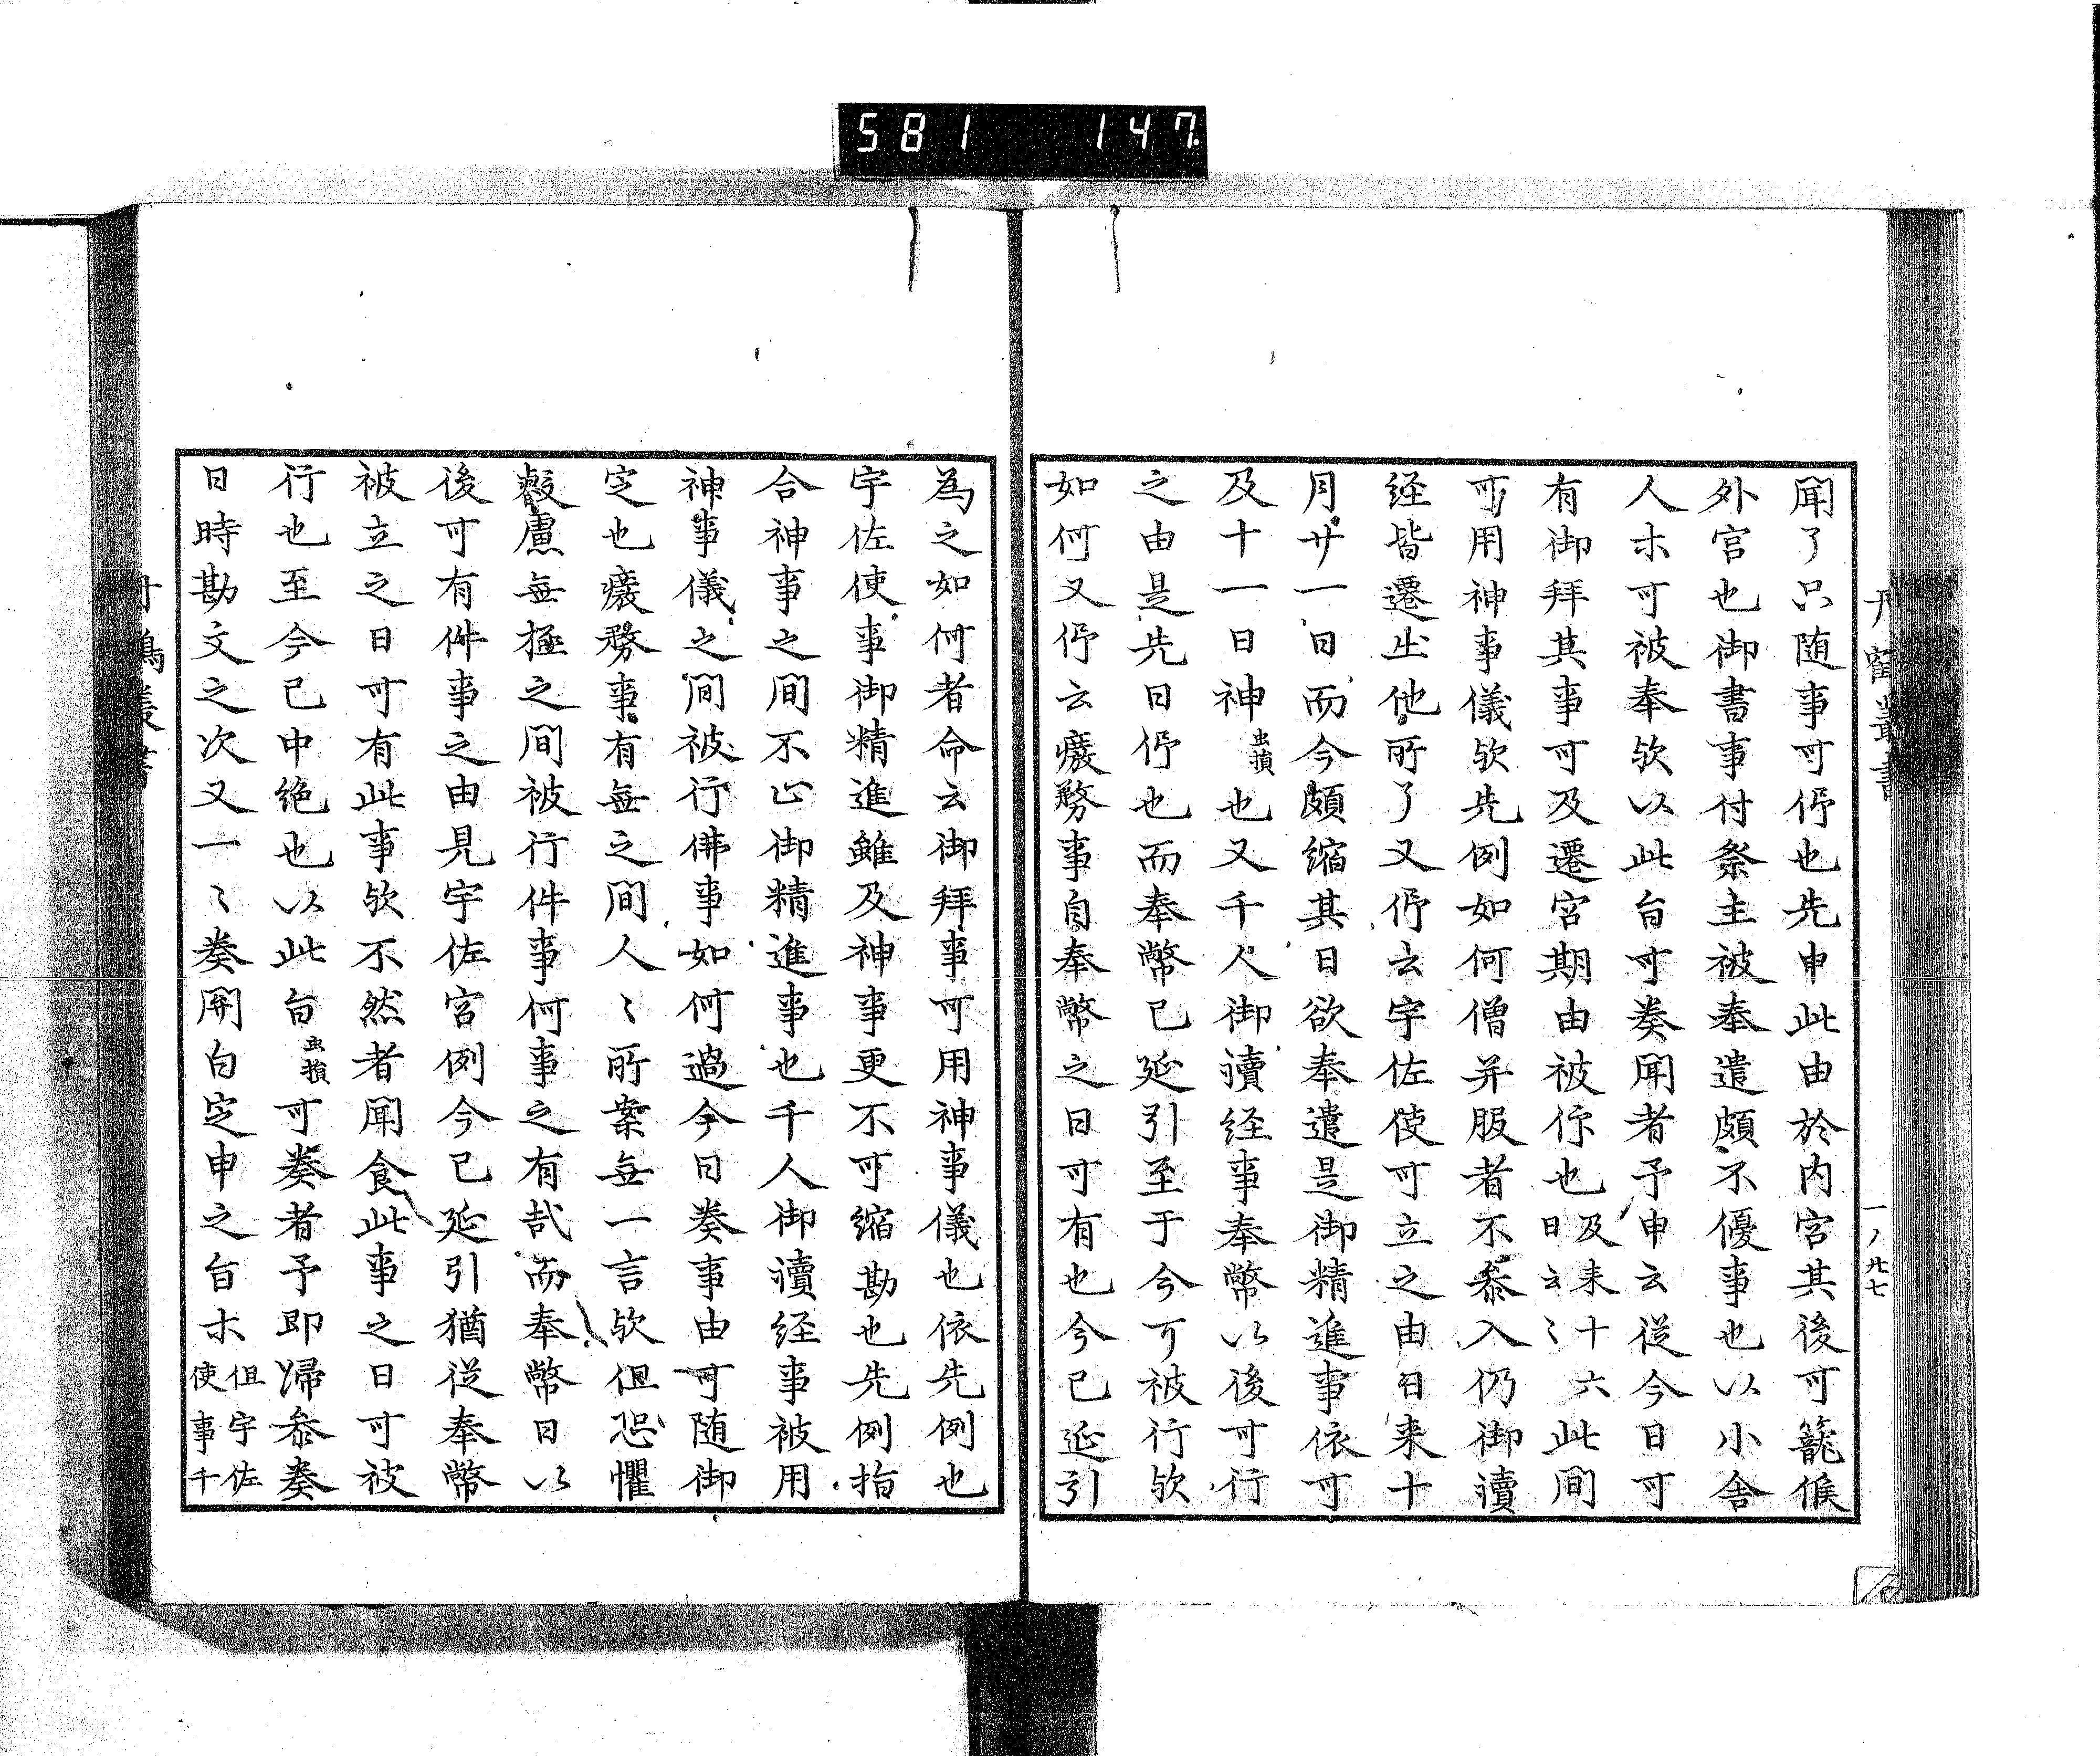 581 147
丹鶴叢書
一ノ廿七
聞了只随事可仰也先申此由於内宮其後可籠候
外宮也御書事付祭主被奉遣頗不優事也以小舎
人ホ可被奉欤以此旨可奏聞者予申云従今日可
有御拜其事可及遷宮期由被仰也及来十六此間
日云〻
可用神事儀欤先例如何僧并服者不叅入仍御讀
経皆遷出他所了又仰云宇佐使可立之由日来十
月廿一日而今頗縮其日欲奉遣是御精進事依可
及十一日神虫損也又千人御讀経事奉幣以後可行
之由是先日仰也而奉幣已延引至于今可被行欤
如何又仰云癈務事自奉幣之日可有也今已延引
為之如何者命云御拜事可用神事儀也依先例也
宇佐使事御精進雖及神事更不可縮勘也先例指
合神事之間不止御精進事也千人御讀経事被用
神事儀之間被行佛事如何過今日奏事由可随御
定也癈務事有無之間人〻所案無一言欤但恐懼
叡慮無極之間被行件事何事之有哉而奉幣日以
後可有件事之由見宇佐宮例今已延引猶従奉幣
被立之日可有此事欤不然者聞食此事之日可被
行也至今已中絶也以此旨虫損可奏者予即帰叅奏
日時勘文之次又一〻奏関白定申之旨ホ但宇佐
使事千
丹鶴叢書